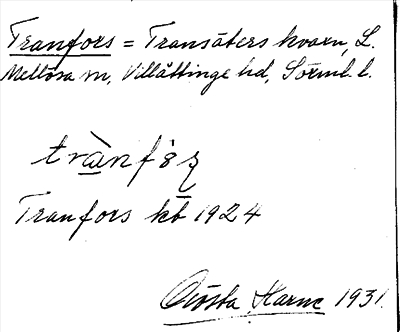 Tranfors = Transäters kvarn, L.
Mellösa sn, Villåttinge hd, Sörml. l.
Tranfors kb 1924
Gösta Harne 1931.